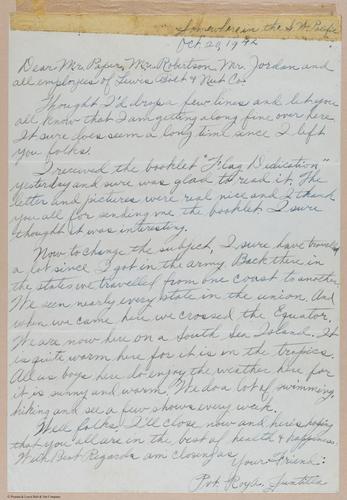 Somewhere in the S.W. Pacific
Oct. 20, 1942
Dear Mr. Peper, Mr. Robertson, Mr. Jordan and
all employees of Lewis Bolt & Nut Co.
Thought I'd drop a few lines and let you
all know that I am getting along fine over here.
It sure does seem a long time since I left
you folks.
I received the booklet "Flag Dedication"
yesterday and sure was glad to read it. The
letter and pictures were real nice and I thank
you all for sending me the booklet. I sure
thought it was interesting.
Now to change the subject, I sure have traveled
a lot since I got in the army. Back there in
the states we travelled from one coast to another.
We seen nearly every state in the union. And
when we came here we crossed the Equator.
We are now here on a South Sea Island. It
is quite warm here for it is in the tropics.
All us boys here do enjoy the weather here for
it is sunny and warm. We do a lot of swimming,
hiking and see a few shows every week.
Well folks I'll close now and here's hoping
that you all are in the best of health & happiness.
With Best Regards am closing as
Your Friend:
Pvt. Roy